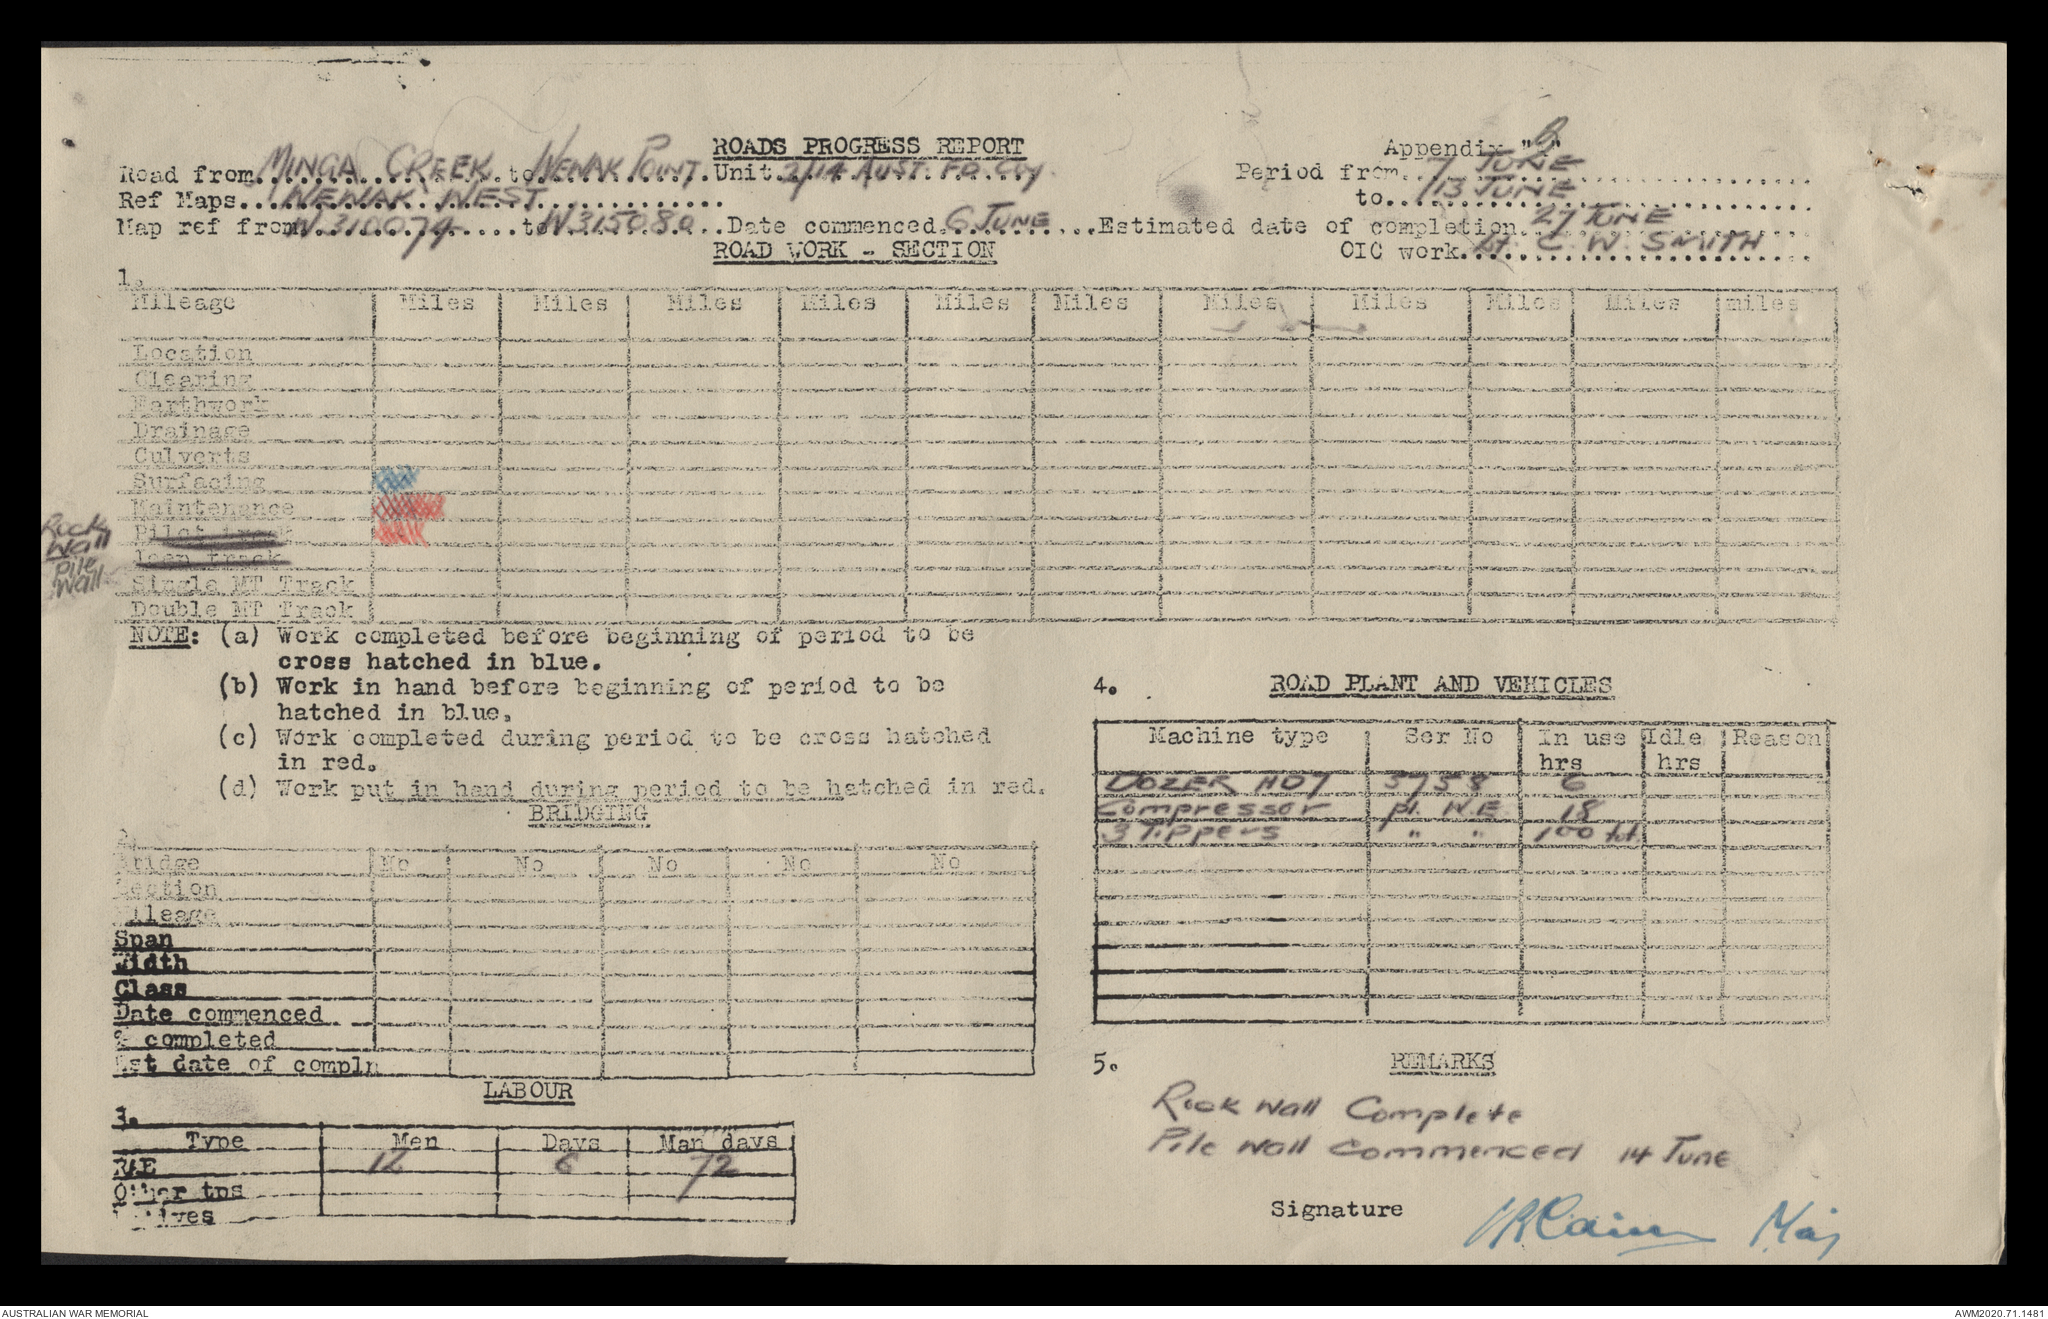 ROADS PROGRESS REPORT
Appendix "B"
Road from MINGA CREEK to WEWAK POINT. Unit 2/14 AUST. FD. COY. Period from 7 JUNE
Ref Maps WEWAK WEST to 13 JUNE
Map ref from W310074 to W315080 Date commenced 6 JUNE Estimated date of completion 27 JUNE
ROAD WORK - SECTION OIC work Lt. C. W. SMITH
1.
Mileage Miles Miles Miles Miles Miles Miles Miles Miles Miles Miles miles
Location
Clearing
Earthwork
Drainage
Culverts
Surfacing
Maintenance
Rock Wall Pilot track
Pile Wall Jeep track
Single MT Track
Double MT Track
NOTE: (a) Work completed before beginning of period to be
cross hatched in blue.
(b) Work in hand before beginning of period to be
hatched in blue.
(c) Work completed during period to be cross hatched
in red.
(d) Work put in hand during period to be hatched in red.
BRIDGING
2.
Bridge No No No No No
Section
Mileage
Span
Width
Class
Date commenced
% completed
Est date of compln
LABOUR
3.
Type Men Days Man days
RAE 12 6 72
Other tps
Natives
4. ROAD PLANT AND VEHICLES
Machine type Ser No In use hrs Idle hrs Reason
DOZER HD7 5758 6
Compressor pl. N.E. 18
3 Tippers " " 100 tot
5. REMARKS
Rock Wall Complete
Pile Wall Commenced 14 June
Signature Maj
AUSTRALIAN WAR MEMORIAL
AWM2020.71.1481